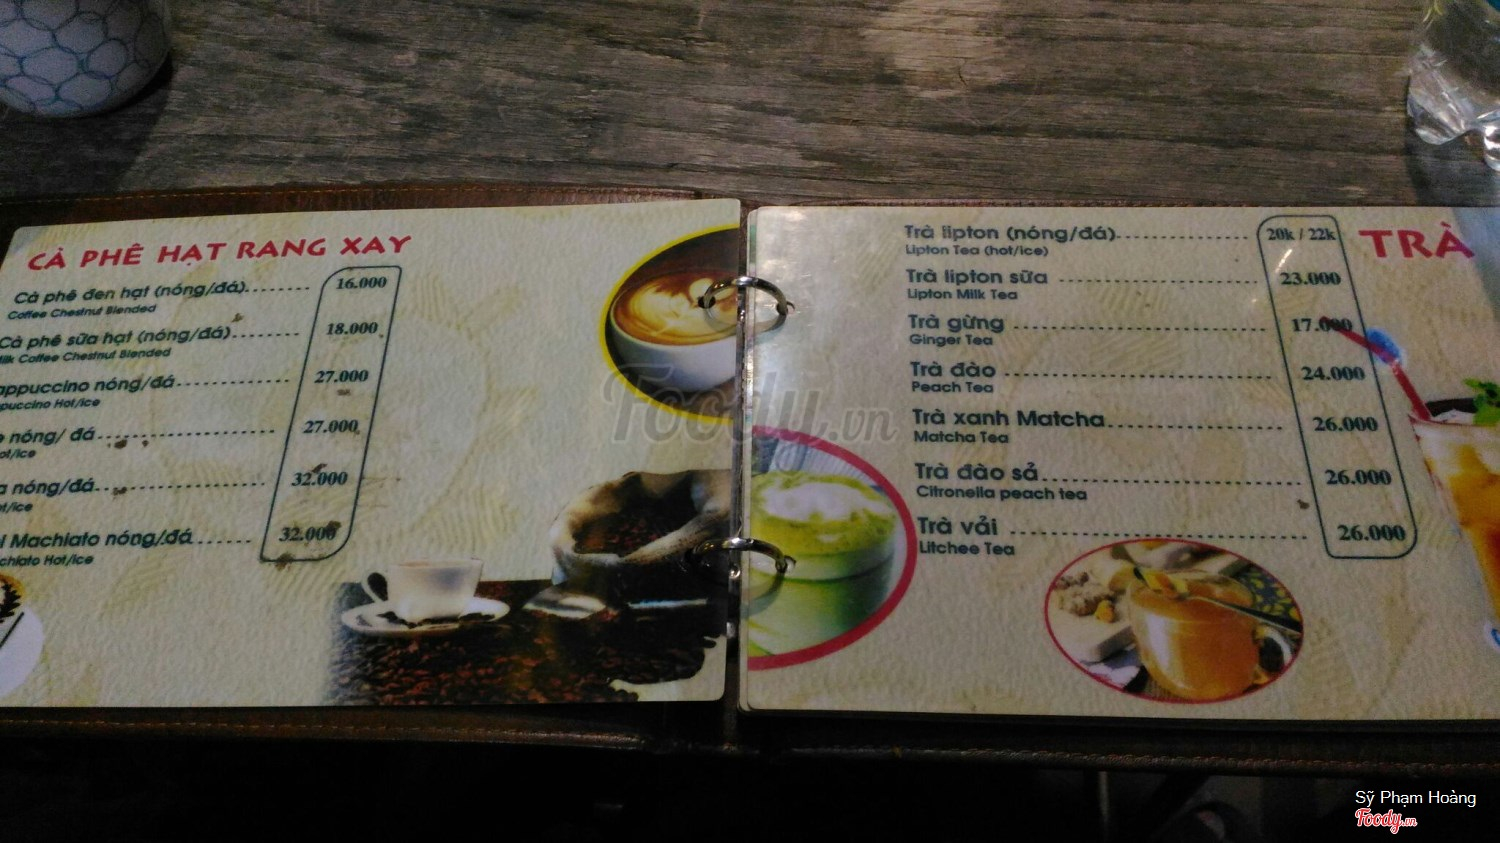 CÀ PHÊ HẠT RANG XAY
Cà phê đen hạt (nóng/đá) 16.000
Coffee Chestnut Blended
Cà phê sữa hạt (nóng/đá) 18.000
Milk Coffee Chestnut Blended
nóng/đá 27.000
Hot/ice
nóng/ đá 27.000
nóng/đá 32.000
Machiato nóng/đá 32.000
Hot/ice
TRÀ
Trà lipton (nóng/đá) 20k / 22k
Lipton Tea (hot/ice)
Trà lipton sữa 23.000
Lipton Milk Tea
Trà gừng 17.000
Ginger Tea
Trà đào 24.000
Peach Tea
Trà xanh Matcha 26.000
Matcha Tea
Trà đào sả 26.000
Citronella peach tea
Trà vải 26.000
Litchee Tea
Foody.vn
Sỹ Phạm Hoàng
Foody.vn